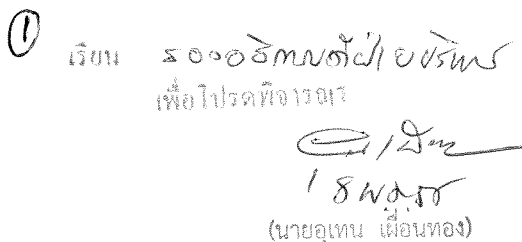 ①
เรียน รองอธิการบดีฝ่ายบริหาร
เพื่อโปรดพิจารณา
(นายอุเทน เผื่อนทอง)